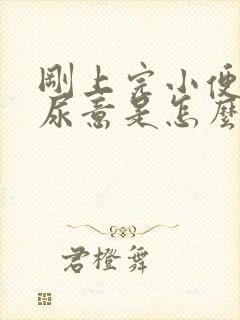 剛上完小便
尿意是怎麼
君橙舞